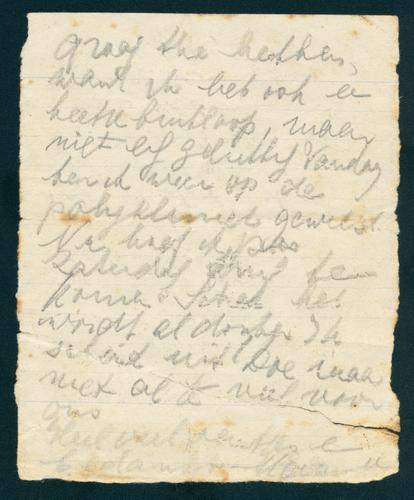 graag thee hebben,
want ik heb ook een
beetje buikloop, maar
niet erg gelukkig Vandaag
ben ik weer op de
polykliniek geweest.
Nu hoef ik pas
Zaterdag terug te
komen. het
wordt al donker Ik
schei uit Doe maar
niet al te veel voor
ons
Heel veel